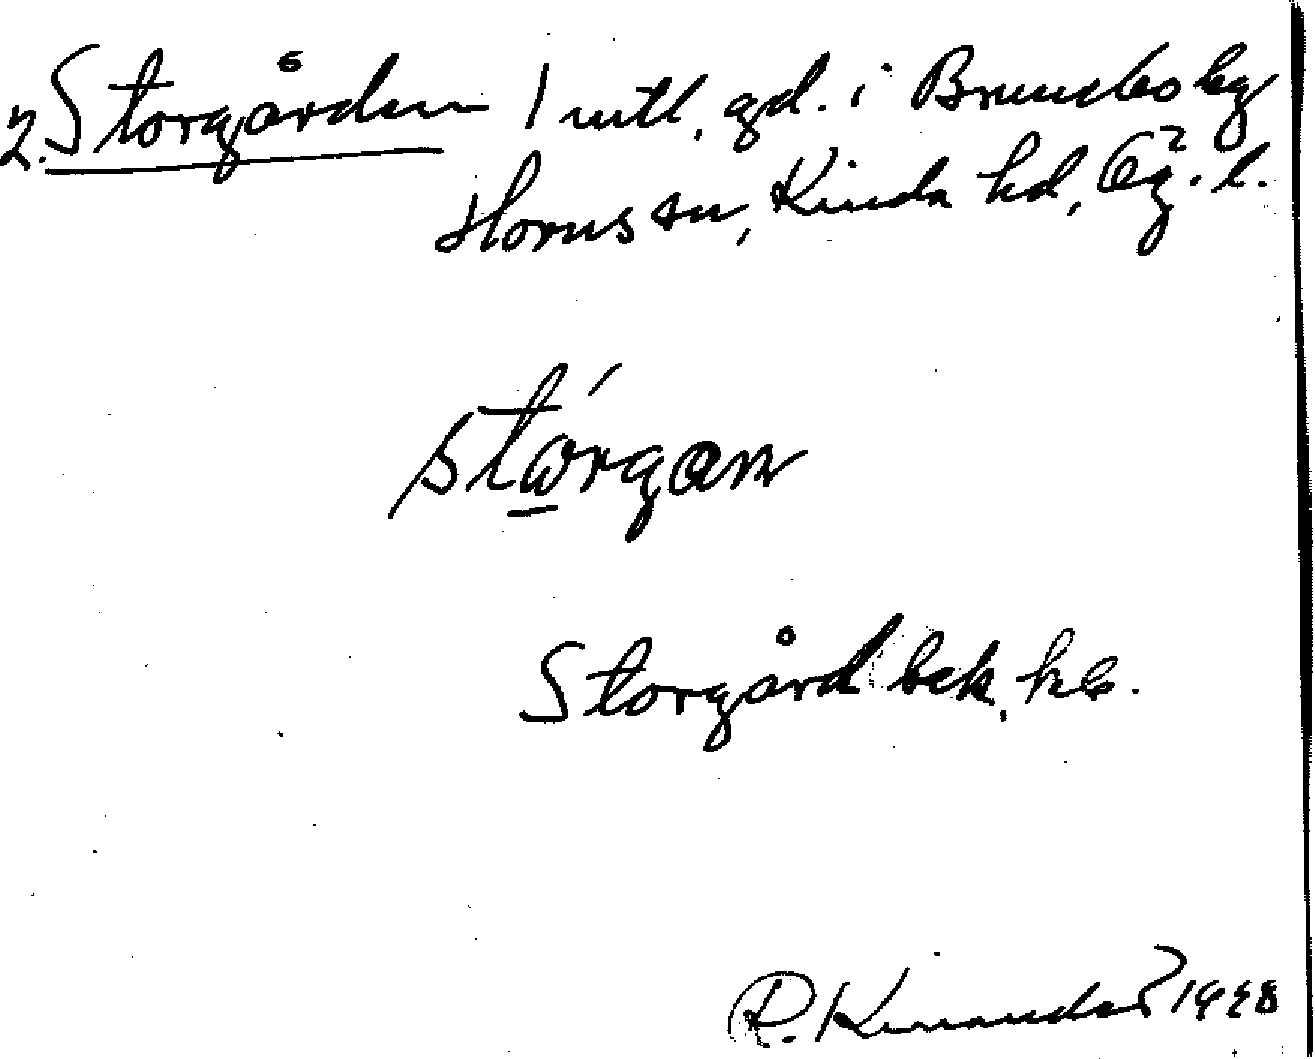 2. Storgården 1 mtl, gd. i Brundebo by
Horns sn, Kinda hd, Ög. l.
stórgan
Storgård bek, kb.
R. Kinander 1928